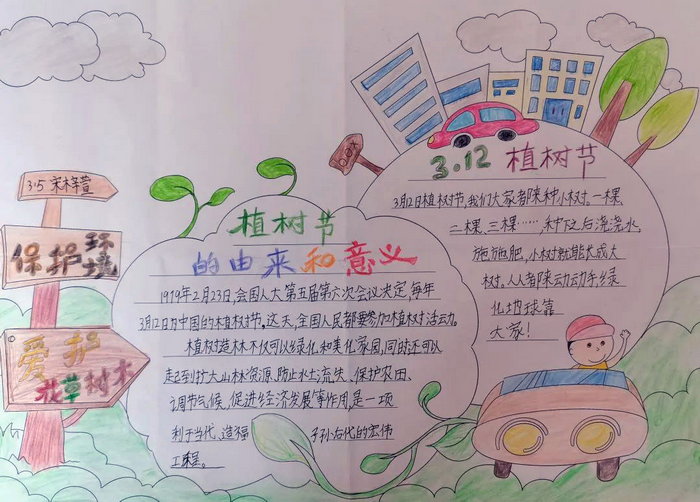 3.5 宋梓萱
保护环境
爱护
花草树木
植树节
的由来和意义
1979年2月23日,会国人大第五届第六次会议决定,每年
3月12日为中国的植树节。这天,全国人民都要参加植树活动。
植树造林不仅可以绿化和美化家园,同时还可以
起到扩大山林资源、防止水土流失、保护农田、
调节气候、促进经济发展等作用,是一项
利于当代、造福子孙后代的宏伟
工程。
3.12 植树节
3月12日植树节,我们大家都来种小树,一棵、
二棵、三棵……,种下之后浇浇水,
施施肥,小树就能长成大
树。人人都来动动手,绿
化地球靠
大家!